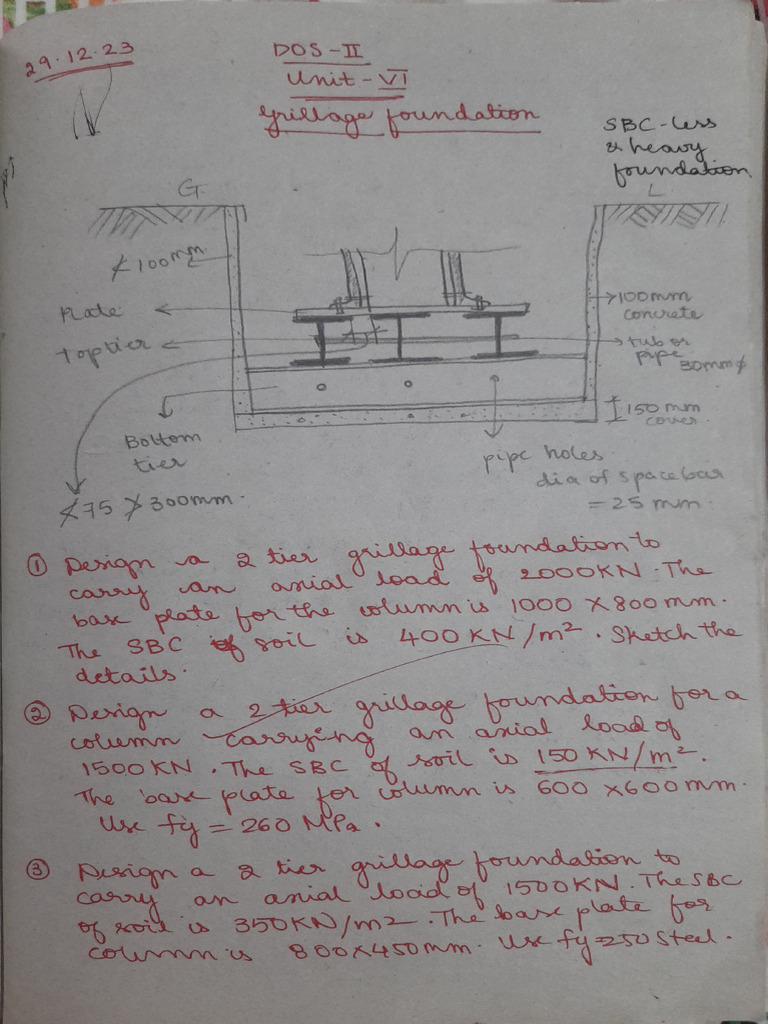 29.12.23
DOS-II
Unit-VI
Grillage foundation
SBC-less
& heavy
foundation
G
L
≮100mm
Plate
Top tier
100mm
concrete
tub or
pipe
30mm φ
Bottom
tier
150 mm
cover
pipe holes
dia of spacebar
= 25 mm.
≮75 ≯300mm.
① Design a 2 tier grillage foundation to
carry an axial load of 2000KN. The
base plate for the column is 1000 X 800mm.
The SBC of soil is 400 KN/m². Sketch the
details.
② Design a 2 tier grillage foundation for a
column carrying an axial load of
1500KN. The SBC of soil is 150 KN/m².
The base plate for column is 600 X600mm.
Use fy = 260 MPa.
③ Design a 2 tier grillage foundation to
carry an axial load of 1500KN. The SBC
of soil is 350KN/m2. The base plate for
column is 800X450mm. Use fy=250 Steel.